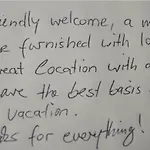 iendly welcome, a m
e furnished with lo
reat Location with a
are the best basis
vacation.
s for everything!